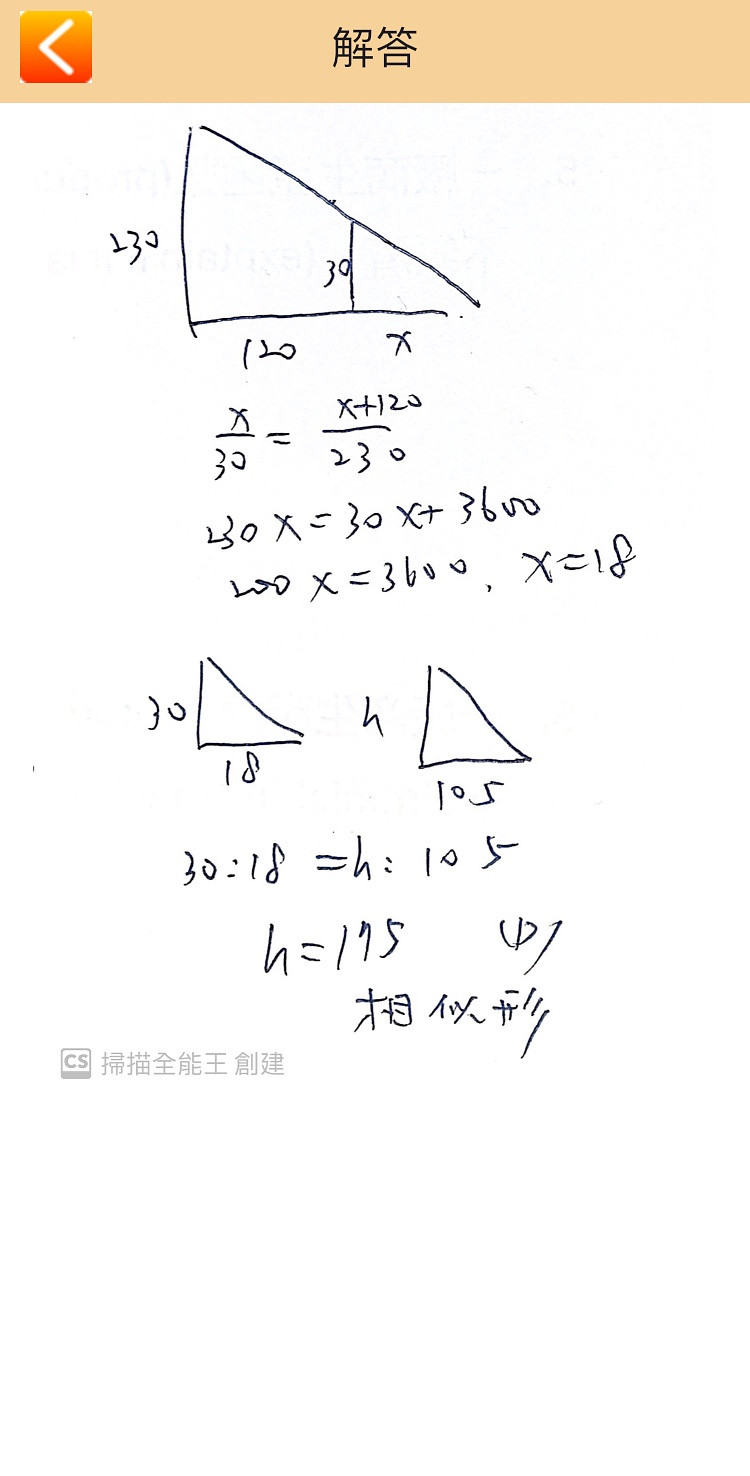 解答
230
30
120
x
x/30 = x+120/230
230x=30x+3600
200x=3600, x=18
30
18
h
105
30:18 =h: 105
h=175 (D)
相似形
CS 掃描全能王 創建